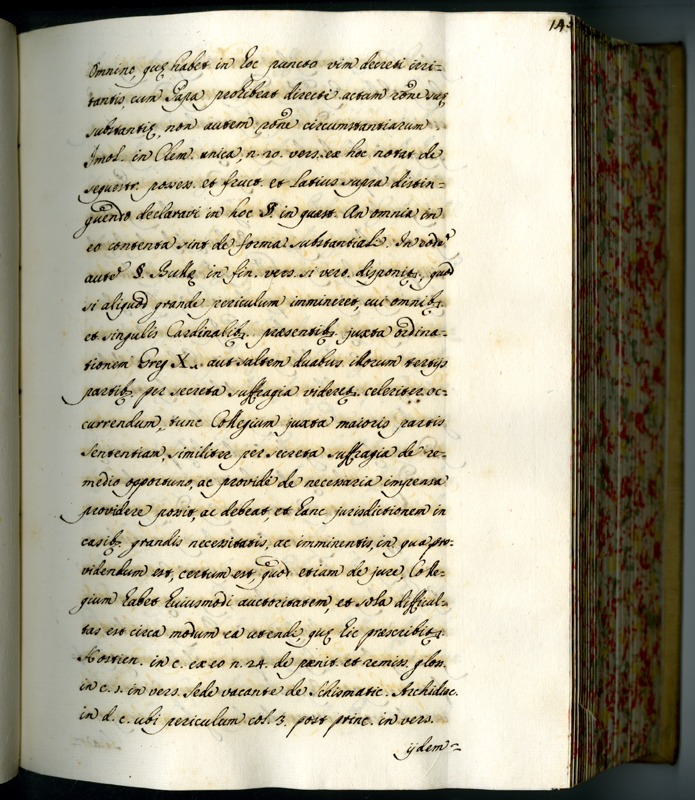 14
Omnino, quę habet in hoc puncto vim decreti irri-
tantis, cum Papa prohibeat directi actum rōne suę
substantię, non autem rōne circumstantiarum.
Imol. in Clem. unica, n. 20. vers. ex hoc notat de
sequestr. possess. et fruct. et latius supra distin-
guendo declaravi in hoc §. in quęst. An omnia in
eo contenta sint de forma substantiali. In eodē
autē §. Bullę in fin. vers. si vero. disponitr. quod
si aliquod grande periculum immineret, cui omnibs.
et singulis Cardinalibs. praesentibs. juxta ordina-
tionem Greg X. aut saltem duabus illorum tertijs
partibs. per secreta suffragia videretr. celeriter oc-
currendum, tunc Collegium juxta maioris partis
sententiam, similiter per secreta suffragia de re-
medio opportuno, ac providè de necessaria impensa
providere possit, ac debeat, et hanc jurisdictionem in
casibs. grandis necessitatis, ac imminentis, in qua pro-
videndum est, certum est, quod etiam de jure, Colle-
gium habet huiusmodi auctoritatem, et sola difficul-
tas est circa modum ea utendi, quę hic praescribitr.
Hostien. in c. ex eo n. 24. de pœnit. et remiss. glos.
in c. 1. in vers. Sede vacante de Schismatic. Archidiac.
in d. c. ubi periculum col. 3. post princ. in vers.
ijdem